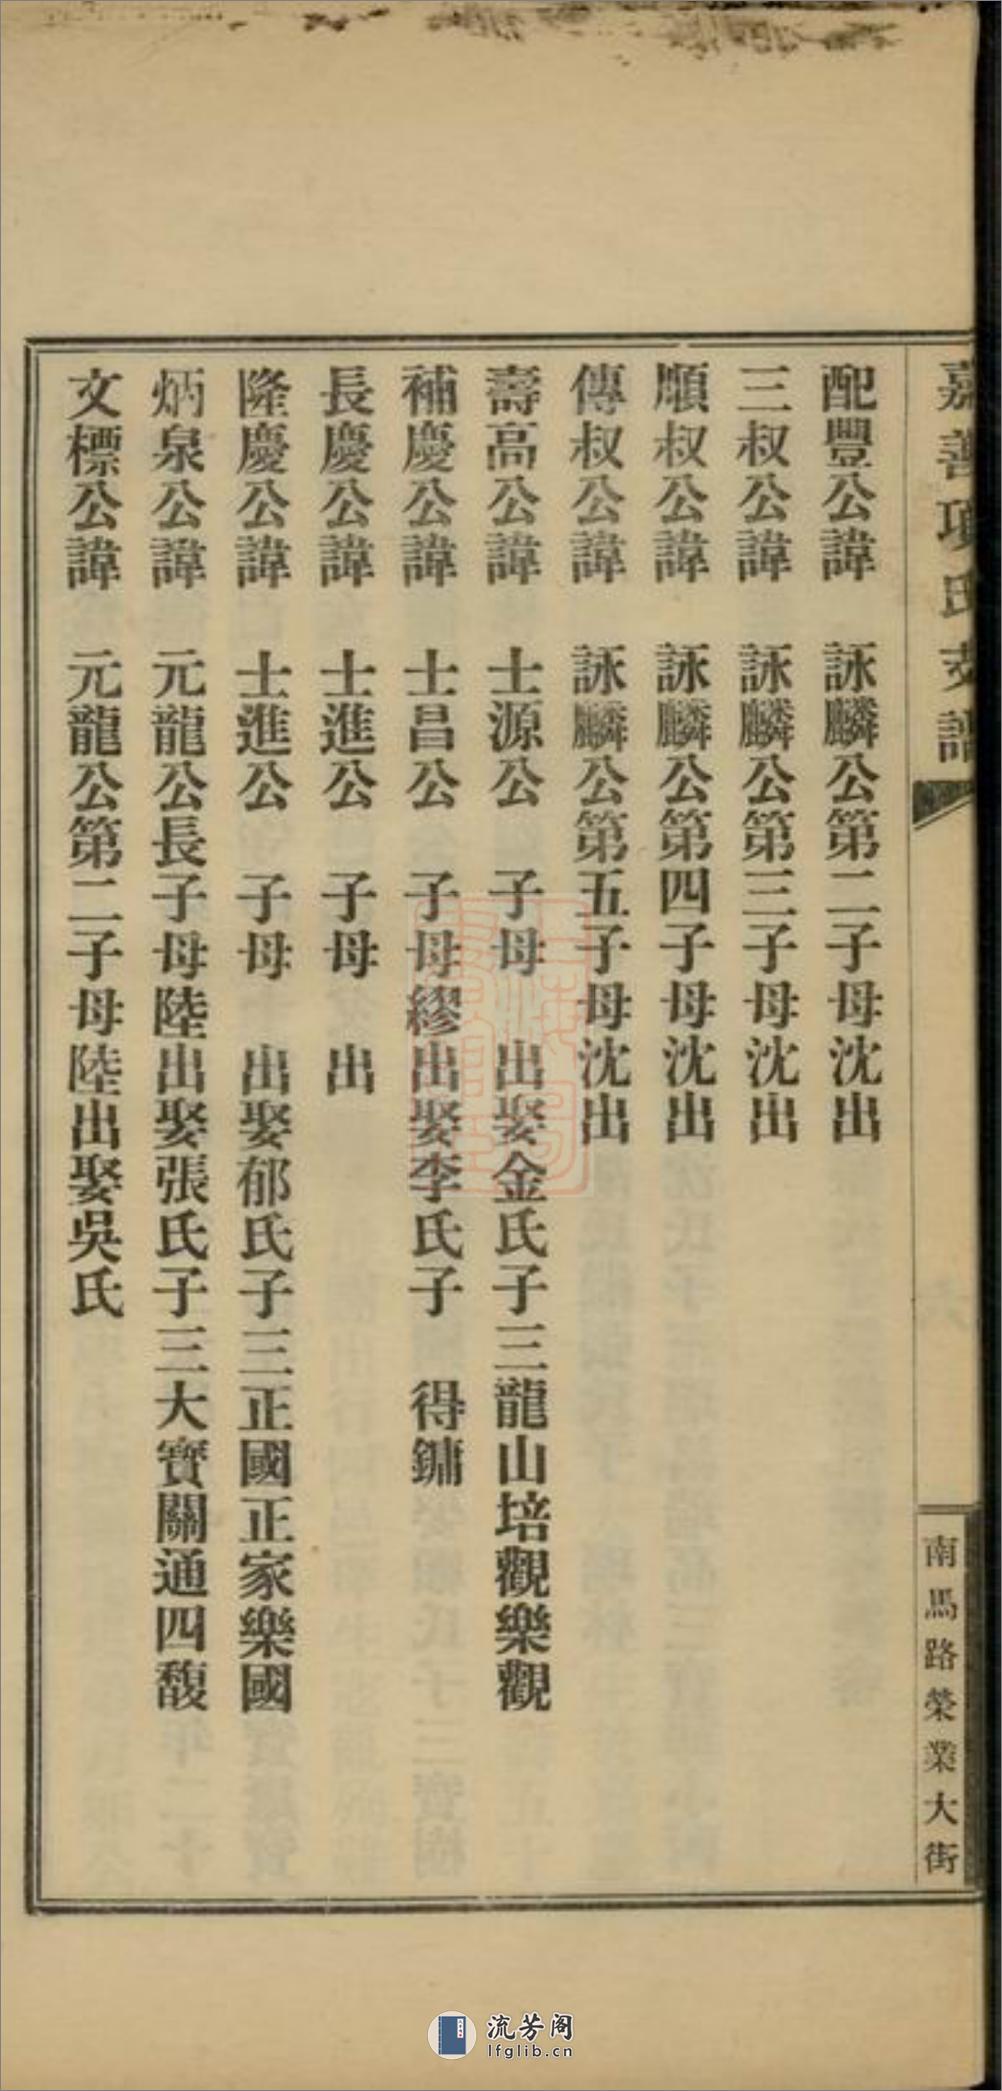 嘉善項氏支譜
南馬路榮業大街
配豐公諱　詠麟公第二子母沈出
三叔公諱　詠麟公第三子母沈出
順叔公諱　詠麟公第四子母沈出
傳叔公諱　詠麟公第五子母沈出
壽高公諱　士源公　子母　出娶金氏子三龍山培觀樂觀
補慶公諱　士昌公　子母繆出娶李氏子　得鏞
長慶公諱　士進公　子母　出
隆慶公諱　士進公　子母　出娶郁氏子三正國正家樂國
炳泉公諱　元龍公長子母陸出娶張氏子三大寶關通四馥
文標公諱　元龍公第二子母陸出娶吳氏
流芳阁
lfglib.cn